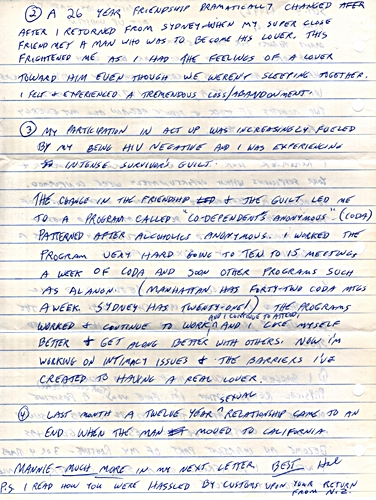 ② A 26 YEAR FRIENDSHIP DRAMATICALLY CHANGED AFTER
AFTER I RETURNED FROM SYDNEY WHEN MY SUPER CLOSE
FRIEND MET A MAN WHO WAS TO BECOME HIS LOVER. THIS
FRIGHTENED ME AS I HAD THE FEELINGS OF A LOVER
TOWARD HIM EVEN THOUGH WE WEREN'T SLEEPING TOGETHER.
I FELT & EXPERIENCED A TREMENDOUS LOSS/ABANDONMENT.
③ MY PARTICIPATION IN ACT UP WAS INCREASINGLY FUELED
BY MY BEING HIV NEGATIVE AND I WAS EXPERIENCING
INTENSE SURVIVOR'S GUILT.
THE CHANGE IN THE FRIENDSHIP LED & THE GUILT LED ME
TO A PROGRAM CALLED "CO-DEPENDENTS ANONYMOUS" (CODA)
PATTERNED AFTER ALCOHOLICS ANONYMOUS. I WORKED THE
PROGRAM VERY HARD GOING TO TEN TO 15 MEETINGS
A WEEK OF CODA AND SOON OTHER PROGRAMS SUCH
AS ALANON. (MANHATTAN HAS FORTY-TWO CODA MTGS
A WEEK. SYDNEY HAS TWENTY-ONE!) THE PROGRAMS
AND I CONTINUE TO ATTEND,
WORKED & CONTINUE TO WORK AND I LOVE MYSELF
BETTER & GET ALONG BETTER WITH OTHERS. NOW I'M
WORKING ON INTIMACY ISSUES & THE BARRIERS I'VE
CREATED TO HAVING A REAL LOVER.
④ LAST MONTH A TWELVE YEAR SEXUAL RELATIONSHIP CAME TO AN
END WHEN THE MAN MOVED TO CALIFORNIA
MANNIE - MUCH MORE IN MY NEXT LETTER. BEST, Hal
P.S I READ HOW YOU WERE HASSLED BY CUSTOMS UPON YOUR RETURN
FROM N.Z.